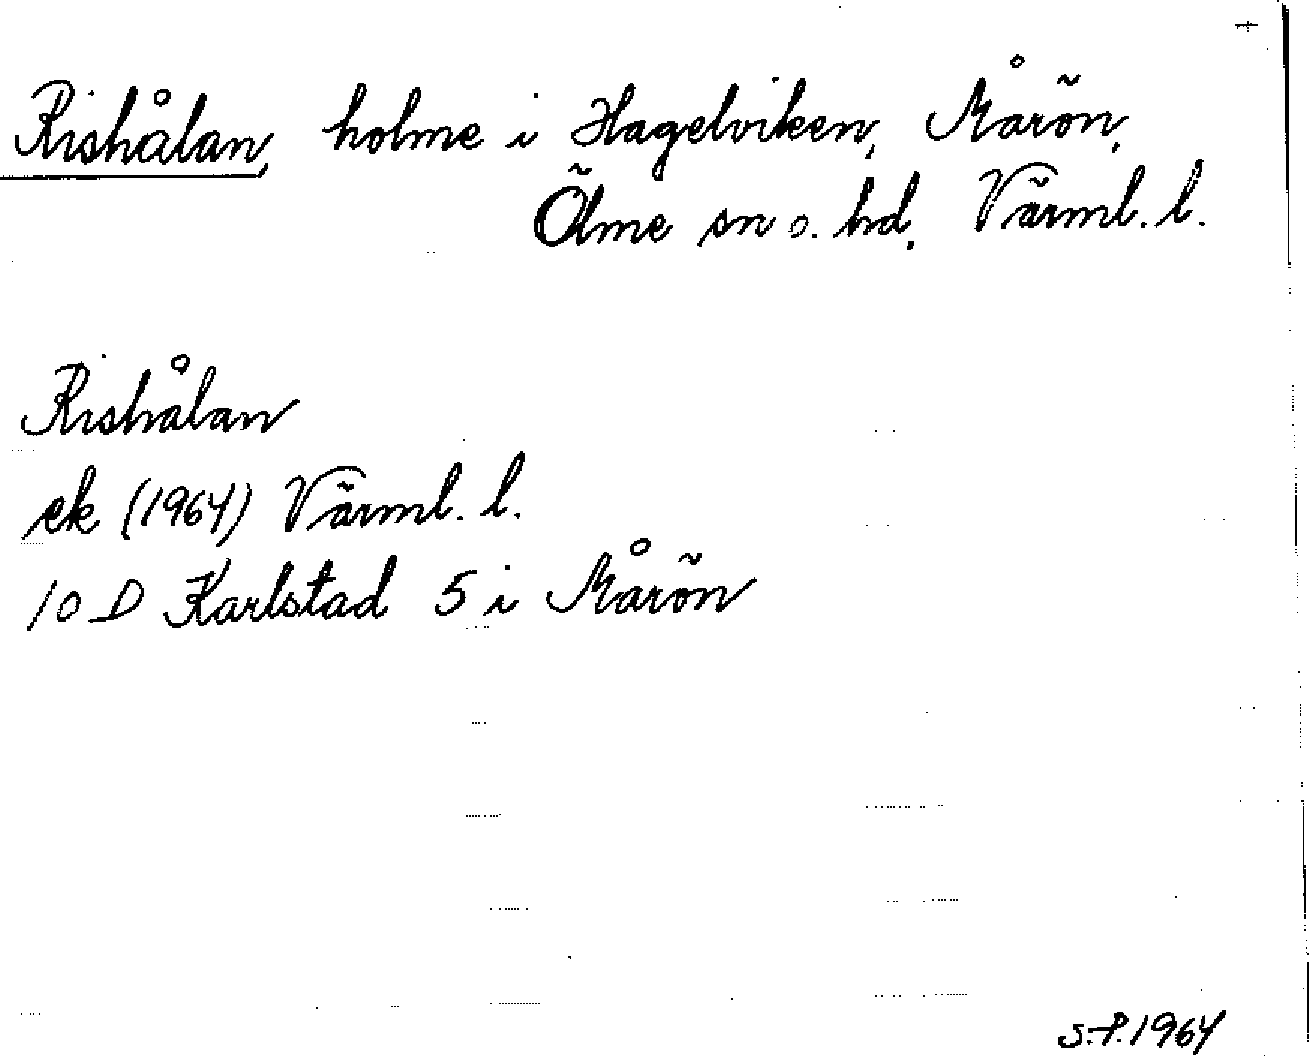 Rishålan, holme i Hagelviken, Mårön,
Ölme sn o. hd, Värml. l.
Rishålan
ek (1964) Värml. l.
10 D Karlstad 5 i Mårön
S.P. 1964